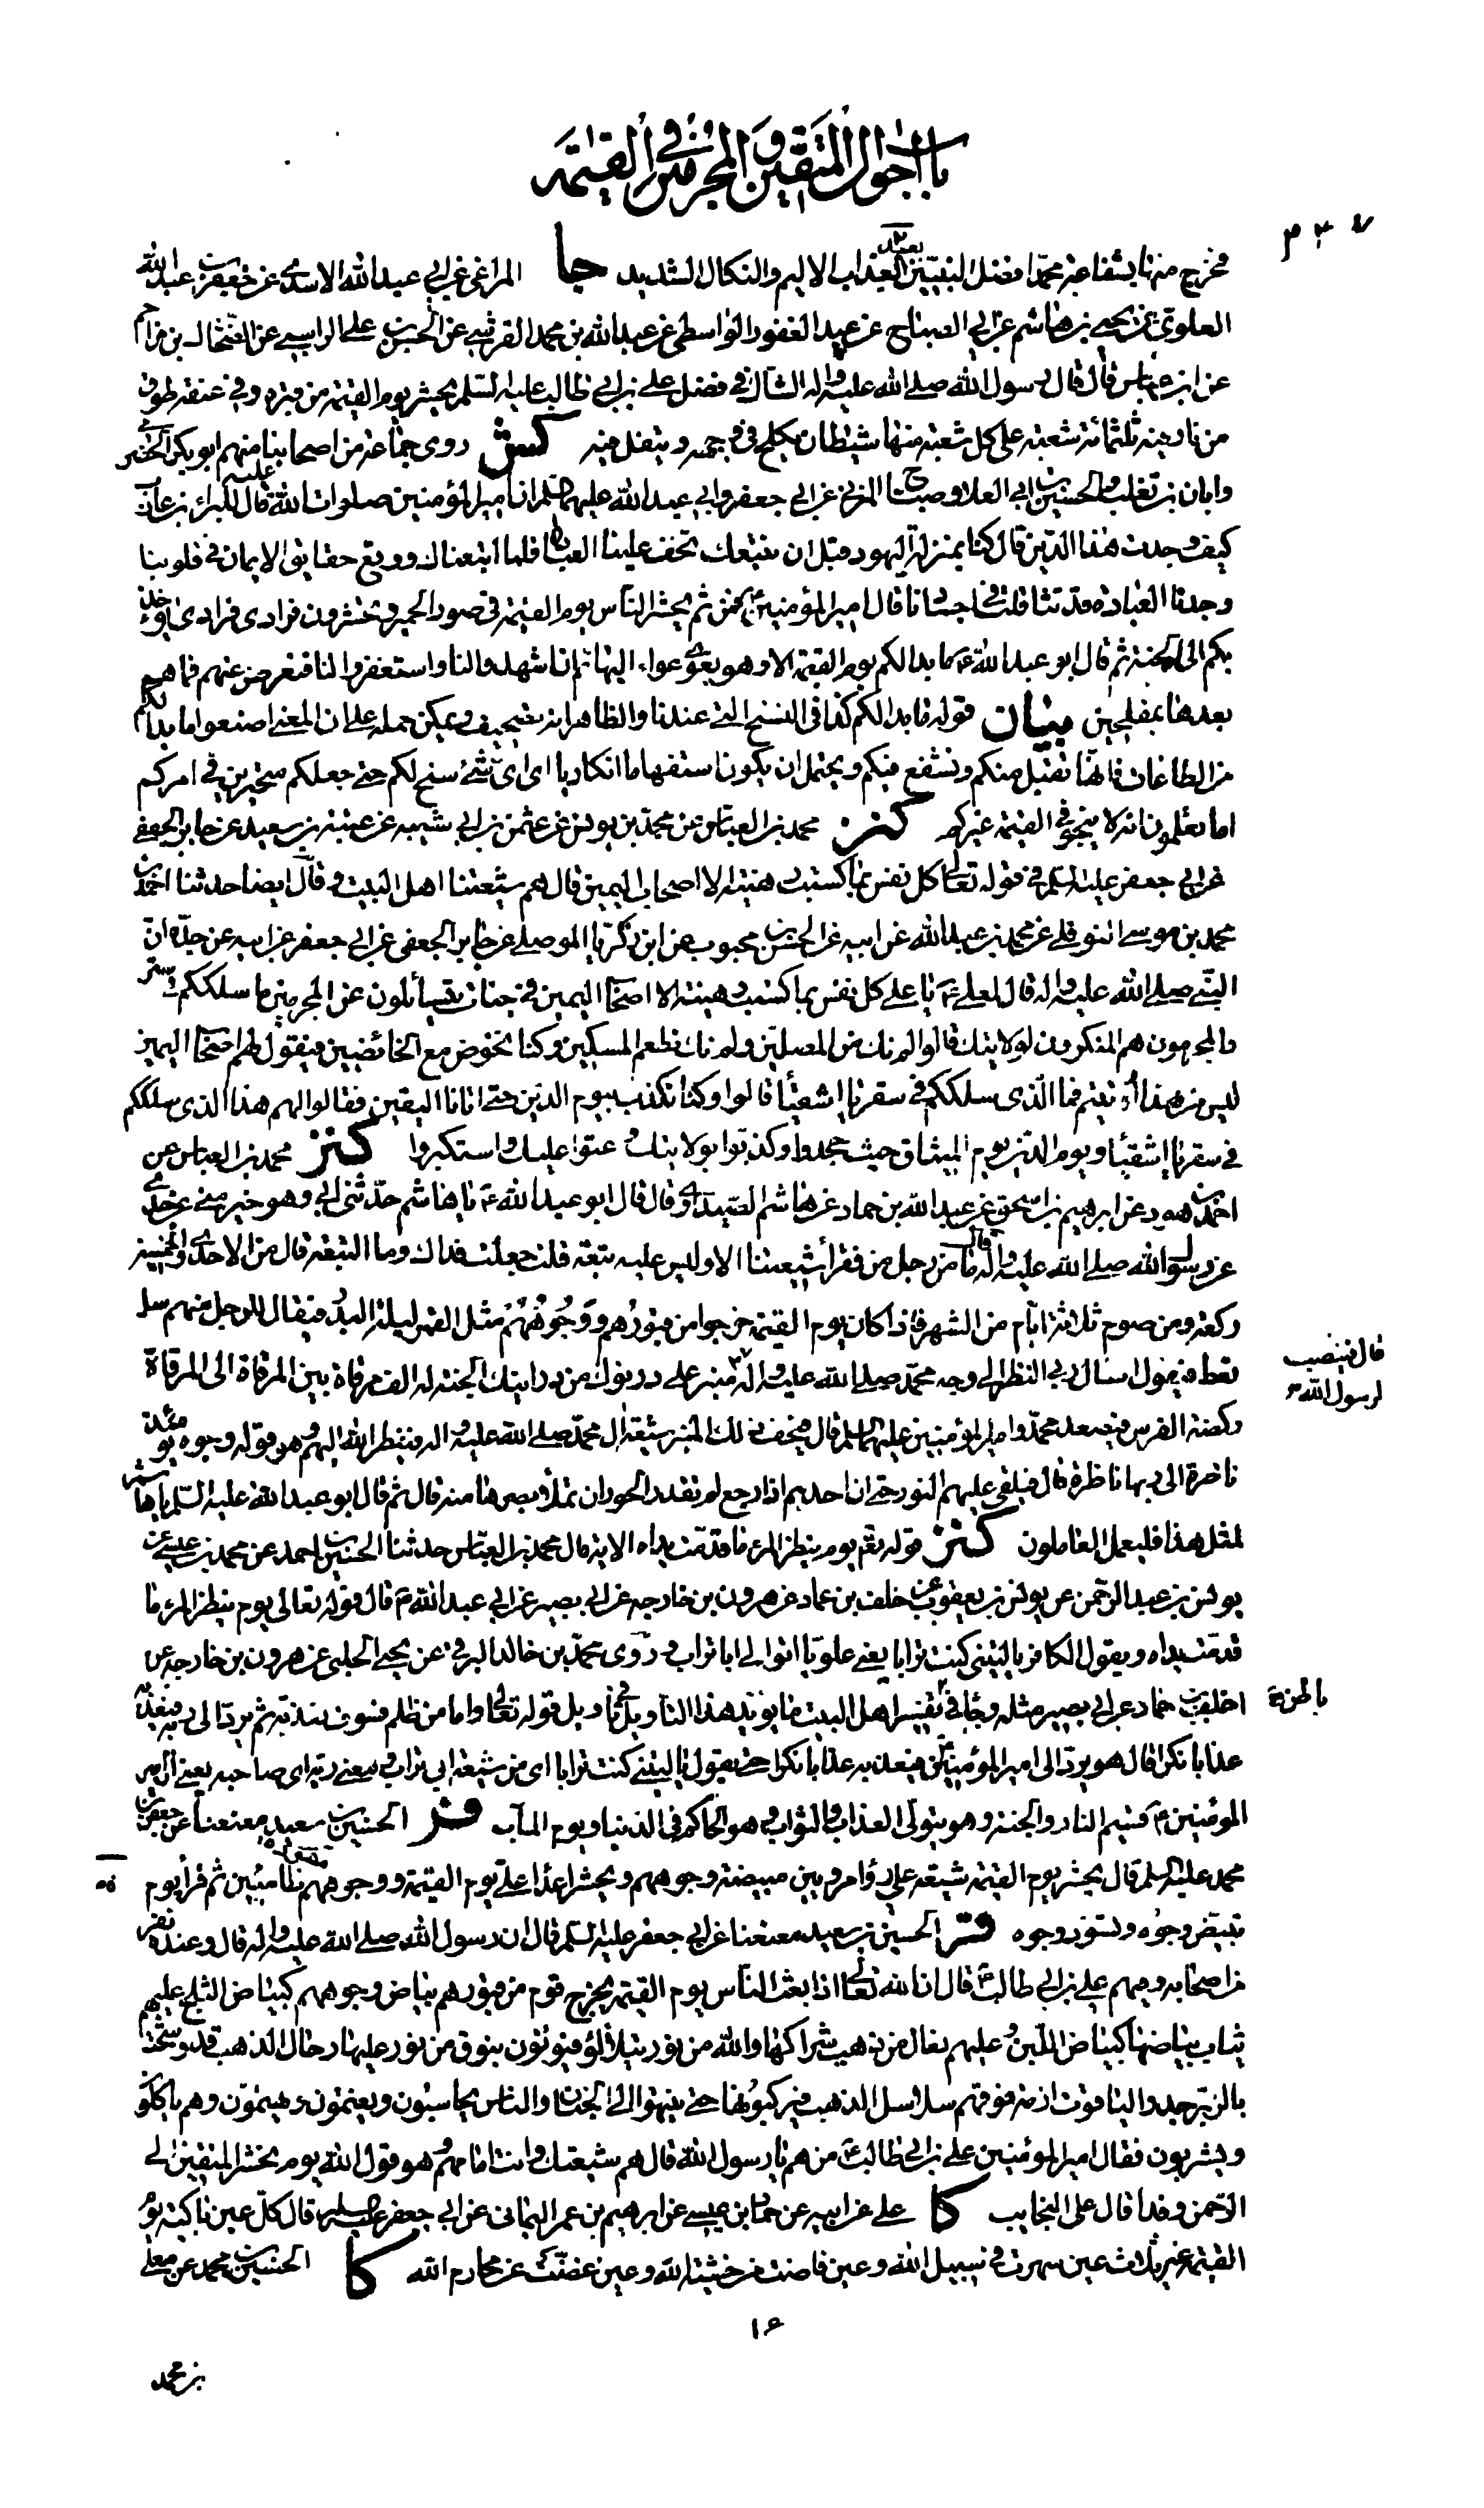 باب احوال المتقين والمجرمين في القيمة
فخرج منها بشفاعة محمد افضل النبيين بعد العذاب الاليم والنكال الشديد جا المراغى عن ابى عبدالله الاسدى عن جعفر بن عبدالله
العلوى عن يحيى بن هاشم عن ابى الصباح عن عبد الغفور الواسطى عن عبدالله بن محمد القرشى عن الحسن بن على الراسبى عن الضحاك بن مزاحم
عن ابن عباس قال قال رسول الله صلى الله عليه واله الشاك فى فضل على بن ابى طالب عليه السلم يحشر يوم القيمة من قبره وفى عنقه طوق
من نار فيه ثلثمائة شعبة على كل شعبة منها شيطان يكلح فى وجهه ويتفل فيه كش روى جماعة من اصحابنا منهم ابو بكر الحضرمى
وابان بن تغلب والحسين بن ابى العلا وصباح المزنى عن ابى جعفر وابى عبدالله عليهما السلم ان امير المؤمنين صلوات الله عليه قال للبراء بن عازب
كيف وجدت هذا الدين قال كنا بمنزلة اليهود قبل ان نتبعك تخف علينا العبادة فلما اتبعناك ووقع حقايق الايمان فى قلوبنا
وجدنا العبادة قد تثاقلت فى اجسادنا قال امير المؤمنين فمن ثم يحشر الناس يوم القيمة فى صور الحمير وتحشرون فرادى فرادى يؤخذ
بكم الى الجنة ثم قال ابو عبدالله ع ما بدا لكم يوم القيمة الا وهو يعوى عواء البهائم ان اشهدوا لنا واستغفروا لنا فنعرض عنهم فما هم
بعدها بمفلحين بيان قوله ما بدا لكم كذا فى النسخ التى عندنا والظاهر انه تصحيف ويمكن حمله على ان المعنى اصنعوا ما بدا لكم
من الطاعات فانها تقبل منكم ونشفع فيكم ويحتمل ان يكون استفهاما انكاريا اى اى شئ سنح لكم حتى جعلكم متحيرين فى امركم
اما تعلمون انه لا ينجو فى القيمة غيركم كنز محمد بن العباس عن محمد بن يونس عن عثمن بن ابى شيبه عن عتبة بن سعيد عن جابر الجعفى
عن ابى جعفر عليه السلم فى قوله تعالى كل نفس بما كسبت رهينة الا اصحاب اليمين قال هم شيعتنا اهل البيت وقال ايضا حدثنا احمد بن
محمد بن موسى النوفلى عن محمد بن عبدالله عن ابيه عن الحسن بن محبوب عن ابن زكريا الموصلى عن جابر الجعفى عن ابى جعفر عن ابيه عن جده ان
النبى صلى الله عليه واله قال لعلى ع يا على كل نفس بما كسبت رهينة الا اصحاب اليمين فى جنات يتسائلون عن المجرمين ما سلككم فى سقر
والمجرمون هم المنكرون لولايتك قالوا لم نك من المصلين ولم نك نطعم المسكين وكنا نخوض مع الخائضين فيقول لهم اصحاب اليمين
ليس من هذا اوتيتم فما الذى سلككم فى سقر يا اشقياء قالوا وكنا نكذب بيوم الدين حتى اتانا اليقين فقالوا لهم هذا الذى سلككم
فى سقر يا اشقياء ويوم الدين يوم الميثاق حيث جحدوا وكذبوا بولايتك وعتوا عليك واستكبروا كنز محمد بن العباس عن
احمد بن هوده عن ابرهيم بن اسحق عن عبدالله بن حماد عن هاشم الصيداوى قال قال ابو عبدالله ع يا هاشم حدثنى ابى وهو خير منى عن جدى
عن رسول الله صلى الله عليه واله قال ما من رجل من فقراء شيعتنا الا وليس عليه تبعة قلت جعلت فداك وما التبعة قال من الاحدى والخمسين
ركعة ومن صوم ثلاثة ايام من الشهر فاذا كان يوم القيمة خرجوا من قبورهم ووجوههم مثل القمر ليلة البدر فيقال للرجل منهم سل
تعط فيقول اسال ربى النظر الى وجه محمد صلى الله عليه واله منبر على درنوك من درانيك الجنة له الف مرقاة بين المرقاة الى المرقاة
قال فينصب
لرسول الله ص
ركضة الفرس فيصعد محمد وامير المؤمنين عليهما السلم قال فيحف ذلك المنبر شيعة آل محمد صلى الله عليه واله فينظر الله اليهم وهو قوله وجوه يومئذ
ناضرة الى ربها ناظرة قال فيلقى عليهم النور حتى ان احدهم اذا رجع لم تقدر الحور ان تملأ بصرها منه قال ثم قال ابو عبدالله عليه السلم يا هاشم
لمثل هذا فليعمل العاملون كنز قوله تع يوم ينظر المرء ما قدمت يداه الاية قال محمد بن العباس حدثنا الحسين بن احمد عن محمد بن عيسى عن
يونس بن عبد الرحمن عن يونس بن يعقوب عن خلف بن حماد عن هرون بن خارجه عن ابى بصير عن ابى عبدالله ع قال قوله تعالى يوم ينظر المرء ما
قدمت يداه ويقول الكافر يا ليتنى كنت ترابا يعنى علويا اتوالى ابا تراب وروى محمد بن خالد البرقى عن يحيى الحلبى عن هرون بن خارجه عن
خلف بن حماد عن ابى بصير مثله وجاء فى باطن تفسير اهل البيت ما يؤيد هذا التاويل فى تاويل قوله تعالى واما من ظلم فسوف نعذبه ثم يرد الى ربه فيعذبه
عذابا نكرا قال هو يرد الى امير المؤمنين فيعذبه عذابا نكرا حتى يقول يا ليتنى كنت ترابا اى من شيعة ابى تراب ومعنى ربه اى صاحبه يعنى ان امير
المؤمنين ع قسيم النار والجنة وهو يتولى العذاب والثواب وهو الحاكم فى الدنيا ويوم المآب فر الحسين بن سعيد معنعنا عن جعفر بن
محمد عليه السلم قال يحشر يوم القيمة شيعة على رواء مرويين مبيضة وجوههم ويحشر اعداء على يوم القيمة ووجوههم مسودة ظامئين ثم قرأ يوم
تبيض وجوه وتسود وجوه فر الحسين بن سعيد معنعنا عن ابى جعفر عليه السلم قال ان رسول الله صلى الله عليه واله قال وعنده نفر
من اصحابه وفيهم على بن ابى طالب قال ان الله تعالى اذا بعث الناس يوم القيمة يخرج قوم من قبورهم بياض وجوههم كبياض الثلج عليهم
ثياب بياضها كبياض اللبن وعليهم نعال من ذهب شراكها والله من نور يتلألؤ فيؤتون بنوق من نور عليها رحال الذهب قد وشحت
بالزبرجد والياقوت ازمة نوقهم سلاسل الذهب فيركبونها حتى ينتهوا الى الجنان والناس يحاسبون ويغتمون ويهتمون وهم ياكلون
ويشربون فقال امير المؤمنين على بن ابى طالب ع من هم يا رسول الله قال هم شيعتك وانت امامهم وهو قول الله يوم نحشر المتقين الى
الرحمن وفدا قال على النجايب كا على عن ابيه عن حماد بن عيسى عن ابرهيم بن عمر اليمانى عن ابى جعفر عليه السلم قال كل عين باكية يوم
القيمة غير ثلاث عين سهرت فى سبيل الله وعين فاضت من خشية الله وعين غضت عن محارم الله كا الحسين بن محمد عن معلى
١٦
بن محمد